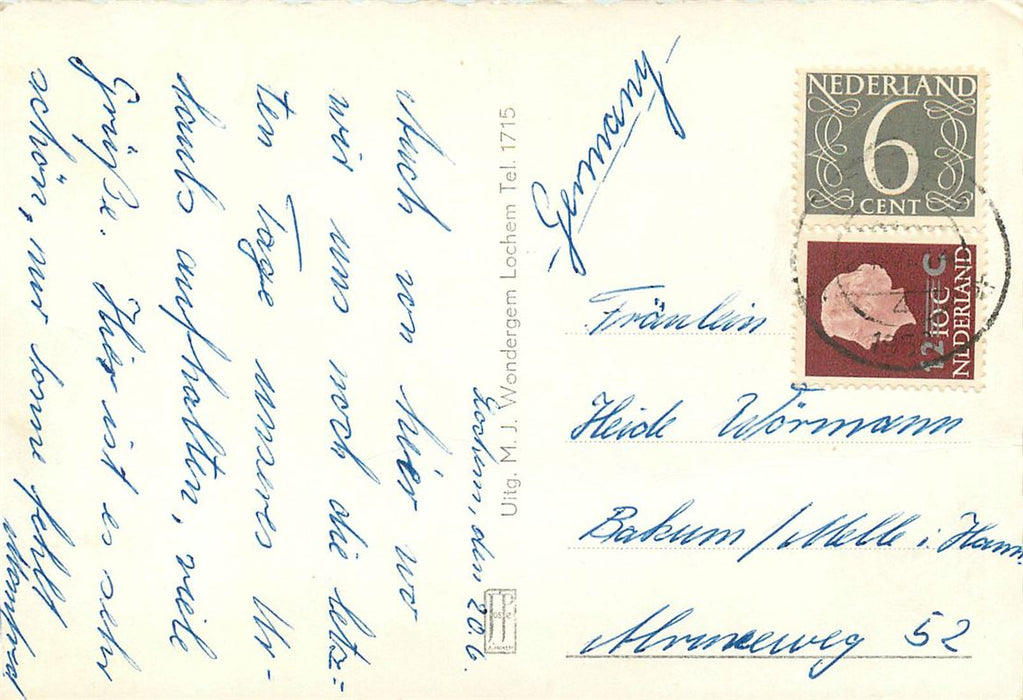 Lochem, den 20.6.
Auch von hier wo
wir uns noch die letz=
ten Tage unseres Ur-
laubs aufhalten, viele
Grüße. Hier ist es sehr
schön, nur Sonne fehlt
Manfred
Uitg. M. J. Wondergem Lochem Tel. 1715
Germany
NEDERLAND
6
CENT
12 C
10 C
NEDERLAND
Fräulein
Heide Wörmann
Bakum / Melle i. Hann
52